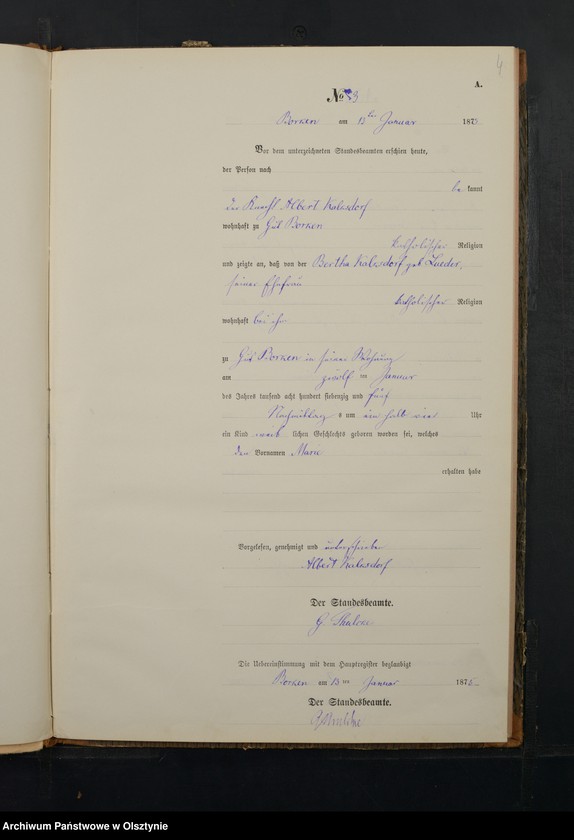 4
A.
No 3
Borken am 13ten Januar 1875
Vor dem unterzeichneten Standesbeamten erschien heute,
der Person nach
be kannt
der Knecht Albert
wohnhaft zu Gut Borken
katholischer Religion
und zeigte an, daß von der Bertha geb. Lueder,
seiner Ehefrau
katholischer Religion
wohnhaft bei ihm
zu Gut Borken in seiner Wohnung
am zwölf ten Januar
des Jahres tausend acht hundert siebenzig und fünf
Nachmittag s um ein halb vier Uhr
ein Kind weib lichen Geschlechts geboren worden sei, welches
den Vornamen Marie
erhalten habe
Vorgelesen, genehmigt und unterschrieben
Albert
Der Standesbeamte.
G.
Die Uebereinstimmung mit dem Hauptregister beglaubigt
Borken am 13 ten Januar 1875
Der Standesbeamte.
Archiwum Państwowe w Olsztynie